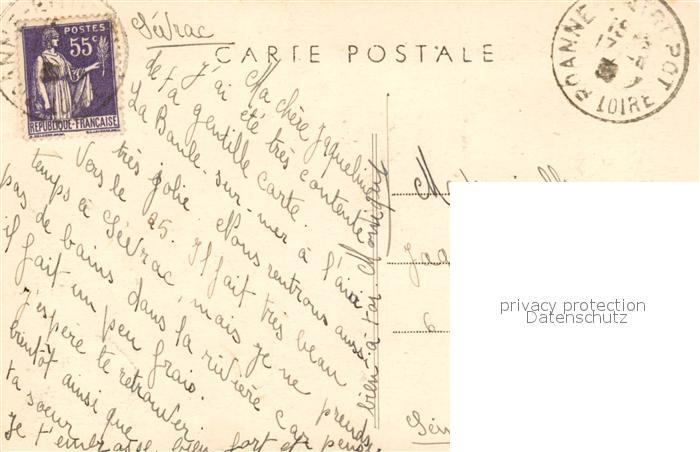 Sévrac
CARTE POSTALE
POSTES
55c
REPUBLIQUE-FRANÇAISE
ROANNE
LOIRE
Ma chère Jaqueline
J'ai été très contente
de ta gentille carte.
La Baule-sur-mer à l'air
très jolie. Nous rentrons aussi
Vers le 25. Il fait très beau
temps à Sévrac, mais je ne prends
pas de bains dans la rivière car
il fait un peu frais.
J'espère te retrouver
bientôt ainsi que
ta soeur.
Je t'embrasse bien fort et pense
bien à toi Monique
Jaq
6
privacy protection
Datenschutz